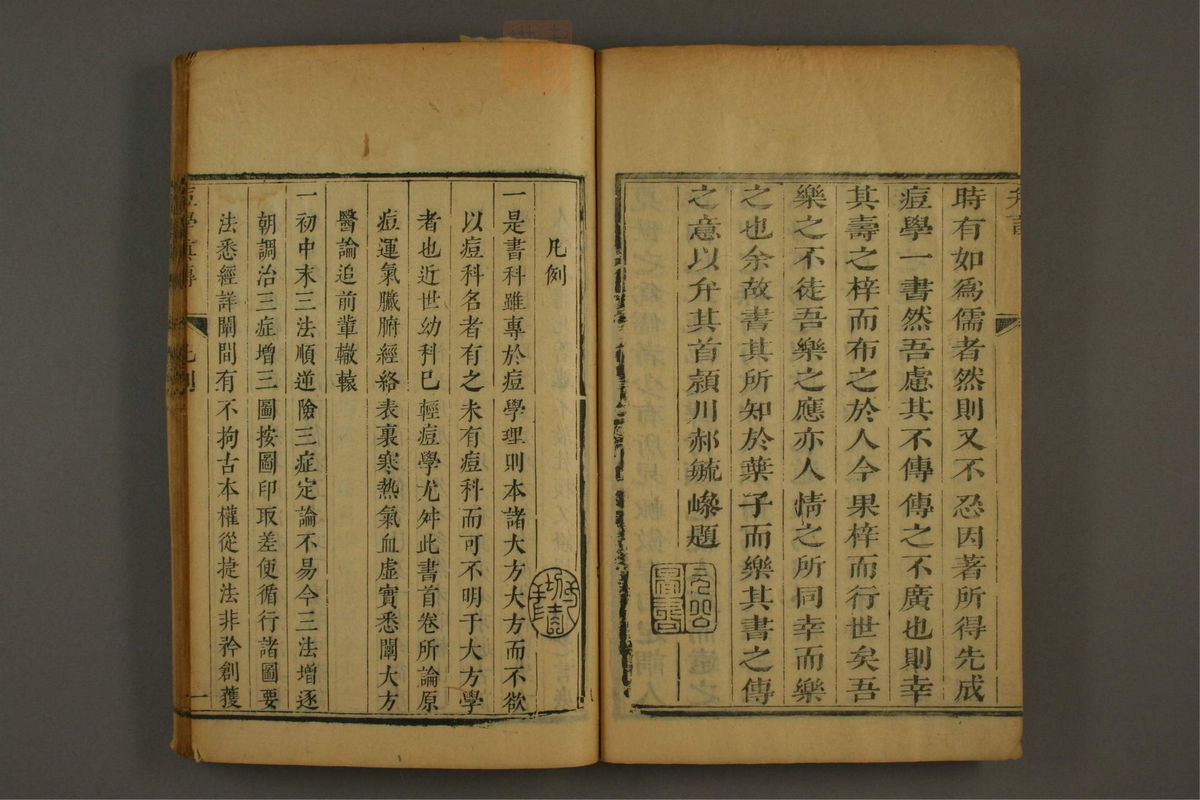 時有如爲儒者然則又不忍因著所得先成
痘學一書然吾慮其不傳傳之不廣也則幸
其壽之梓而布之於人今果梓而行世矣吾
樂之不徒吾樂之應亦人情之所同幸而樂
之也余故書其所知於葉子而樂其書之傳
之意以弁其首潁川郝毓嵾題
凡例
一是書科雖專於痘學理則本諸大方大方而不欲
以痘科名者有之未有痘科而可不明于大方學
者也近世幼科已輕痘學尤舛此書首卷所論原
痘運氣臟腑經絡表裏寒熱氣血虛實悉闡大方
醫論追前輩轍轅
一初中末三法順逆險三症定論不易今三法增逐
朝調治三症增三圖按圖印取差便循行諸圖要
法悉經詳闡間有不拘古本權從捷法非矜創獲
痘學真傳
凡例
一